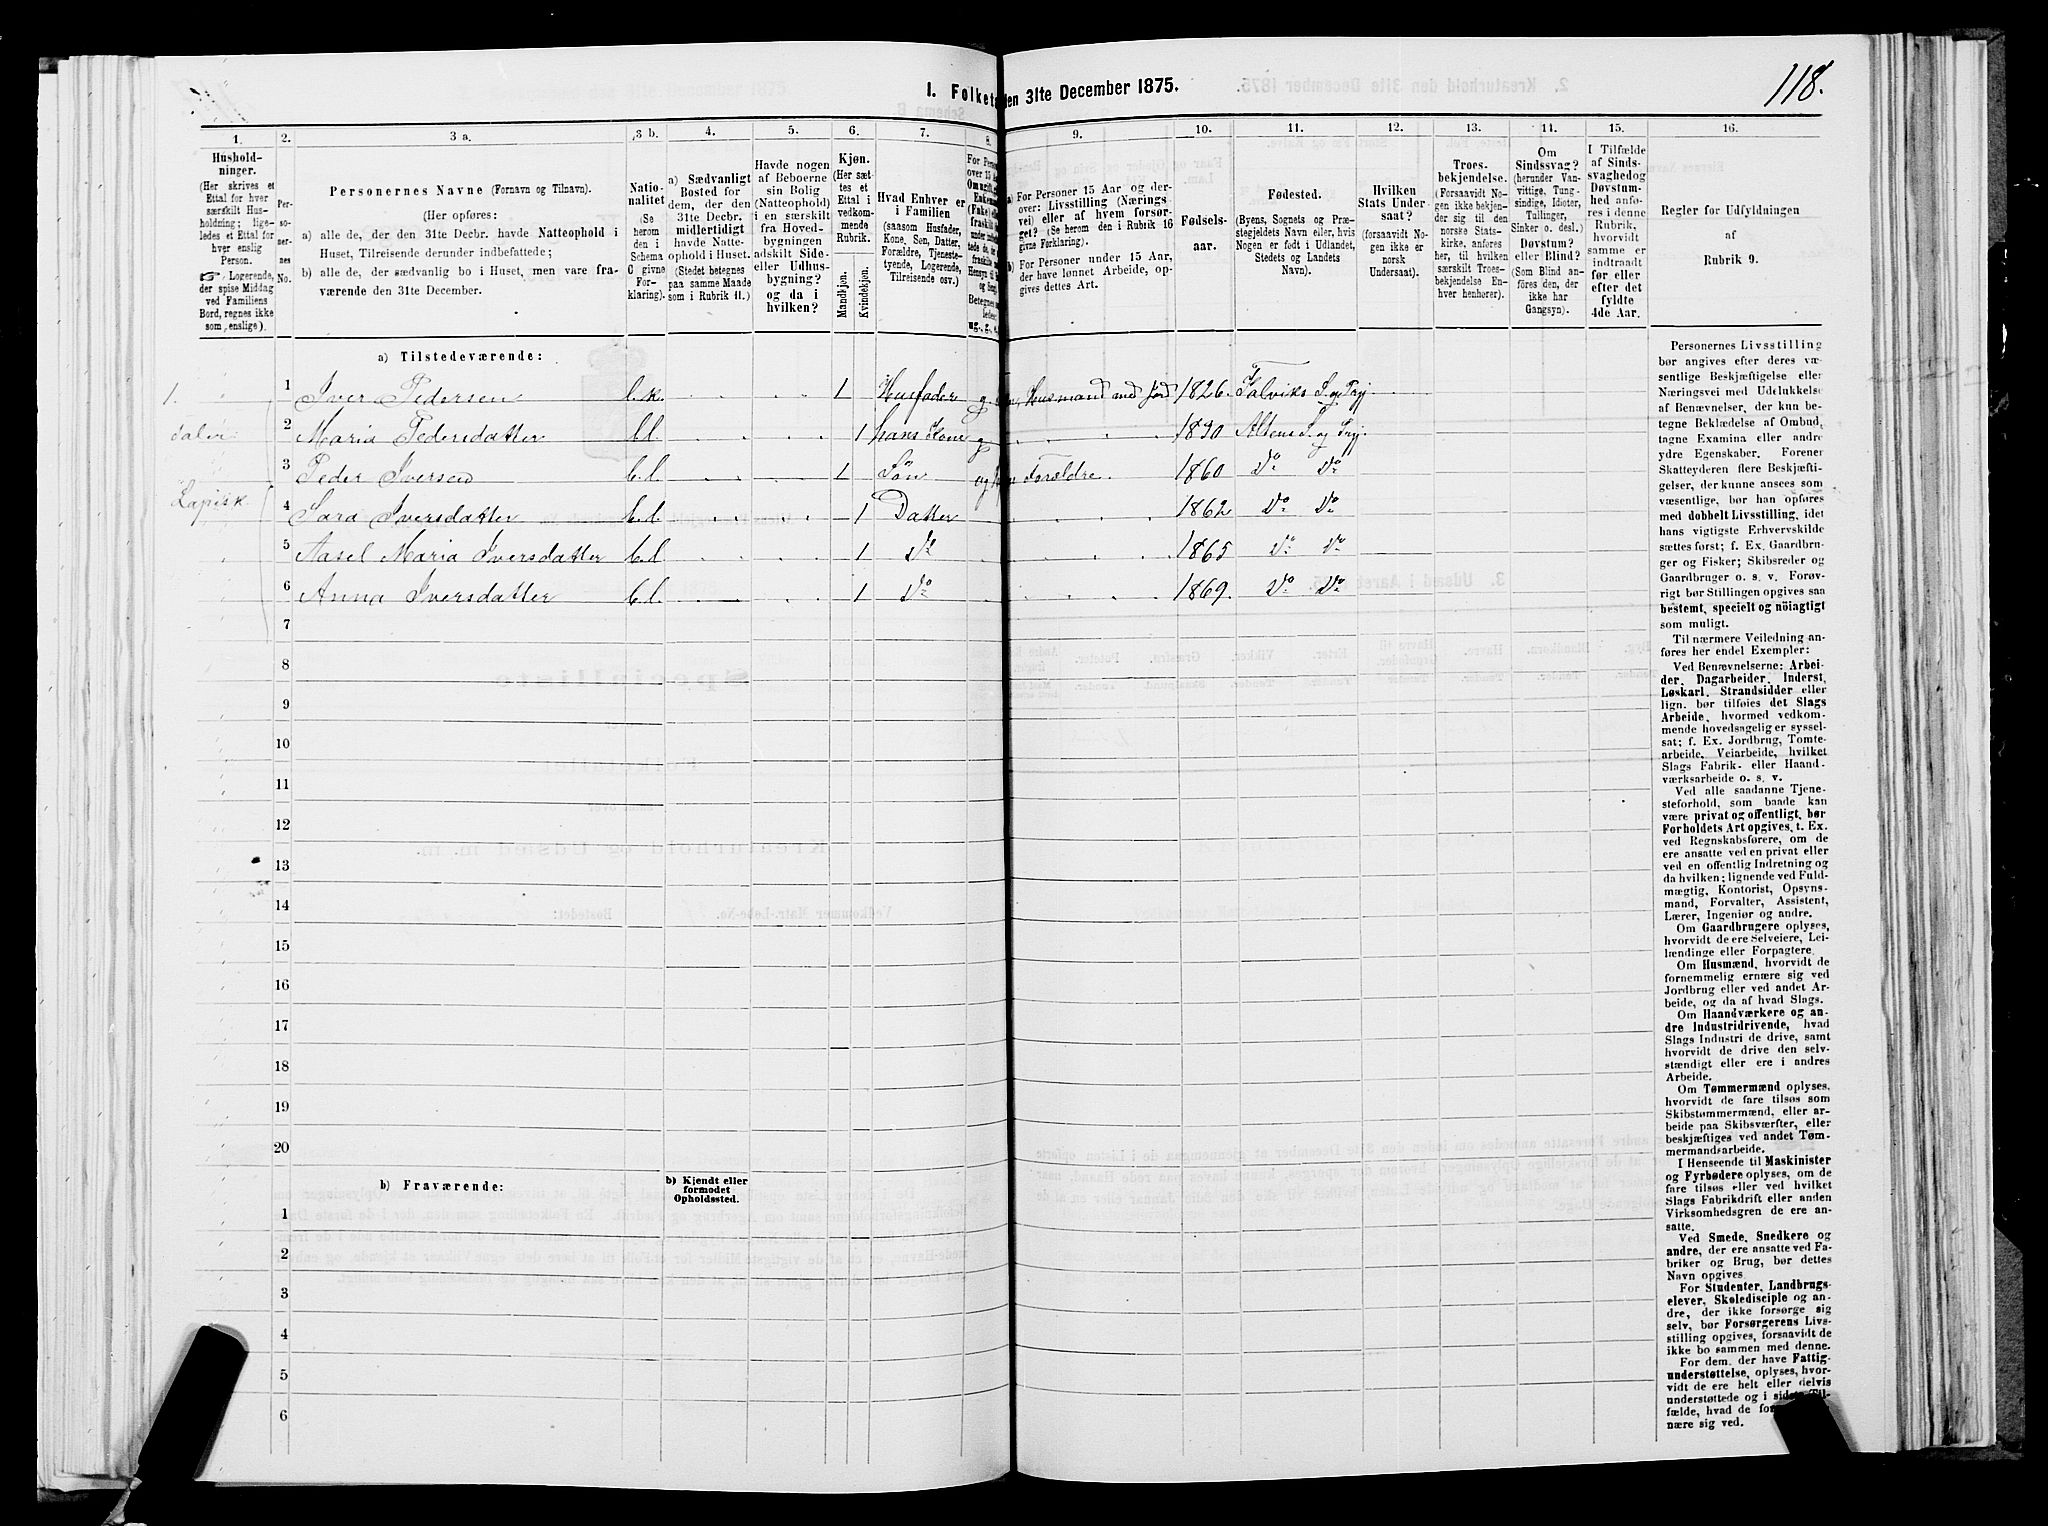 118.
I. Folket den 31te December 1875.
1. 2. 3 a. 3 b. 4. 5. 6. 7. 8. 9. 10. 11. 12. 13. 14. 15. 16.
Hushold-
ninger.
(Her skrives et
Ettal for hver
særskilt Hus-
holdning; lige-
ledes et Ettal for
hver enslig
Person.
Logerende,
der spise Middag
ved Familiens
Bord, regnes ikke
som enslige).
Per-
so-
ner-
nes
No.
Personernes Navne (Fornavn og Tilnavn).
(Her opføres:
a) alle de, der den 31te Decbr. havde Natteophold i
Huset, Tilreisende derunder indbefattede;
b) alle de, der sædvanlig bo i Huset, men vare fra-
værende den 31te December.
Natio-
nalitet
(Se
herom
den i
Schema
C givne
For-
klaring).
a) Sædvanligt
Bosted for
dem, der den
31te Decbr.
midlertidigt
havde Natte-
ophold i Huset.
(Stedet betegnes
paa samme Maade
som i Rubrik 11.)
Havde nogen
af Beboerne
sin Bolig
(Natteophold)
i en særskilt
fra Hoved-
bygningen
adskilt Side-
eller Udhus-
bygning?
og da i
hvilken?
Kjøn.
(Her sæt-
tes et
Ettal i
vedkom-
mende
Rubrik.
Mandkjøn.
Kvindekjøn.
Hvad Enhver er
i Familien
(saasom Husfader,
Kone, Søn, Datter,
Forældre, Tjeneste-
tyende, Logerende,
Tilreisende osv.)
a) For Personer 15 Aar og der-
over: Livsstilling (Nærings-
vei) eller af hvem forsør-
get? (Se herom den i Rubrik 16
givne Forklaring).
b) For Personer under 15 Aar,
der have lønnet Arbeide, op-
gives dettes Art.
Fødsels-
aar.
Fødested.
(Byens, Sognets og Præ-
stegjeldets Navn eller, hvis
Nogen er født i Udlandet,
Stedets og Landets
Navn).
Hvilken
Stats Under-
saat?
(forsaavidt No-
gen ikke er
norsk
Undersaat).
Troes-
bekjendelse.
(Forsaavidt No-
gen ikke bekjen-
der sig til den
norske Stats-
kirke, anføres
her, til hvilken
særskilt Troes-
bekjendelse En-
hver henhører).
Om
Sindssvag?
(herunder Van-
vittige, Tung-
sindige, Idioter,
Tullinger,
Sinker o. desl.)
Døvstum?
eller Blind?
(Som Blind an-
føres den, der
ikke har
Gangsyn).
I Tilfælde
af Sinds-
svaghed og
Døvstum-
hed anfø-
res i denne
Rubrik,
hvorvidt
samme er
indtraadt
før eller
efter det
fyldte
4de Aar.
Regler for Udfyldningen
af
Rubrik 9.
a) Tilstedeværende:
1. 1 Iver Pedersen b. k. 1 Husfader g. Husmand med Jord 1826. Talviks S. og Prj
taler 2 Maria Pedersdatter b l. 1 hans Kone g 1830 Altens S. og Prj.
3 Peder Iversen b. l. 1 Søn ug Forældre. 1860 Do Do
Lapisk 4 Sara Iversdatter b. l. 1 Datter 1862 Do Do
5 Aasel Maria Iversdatter b. l. 1 Do 1865 Do Do
6 Anna Iversdatter b. l. 1 Do 1869. Do Do
7
8
9
10
11
12
13
14
15
16
17
18
19
20
b) Fraværende:
b) Kjendt eller
formodet
Opholdssted.
1
2
3
4
5
6
Personernes Livsstilling
bør angives efter deres væ-
sentlige Beskjæftigelse eller
Næringsvei med Udelukkelse
af Benævnelser, der kun be-
tegne Beklædelse af Ombud,
tagne Examina eller andre
ydre Egenskaber. Forener
Skatteyderen flere Beskjæfti-
gelser, der kunne ansees som
væsentlige, bør han opføres
med dobbelt Livsstilling, idet
hans vigtigste Erhvervskilde
sættes først; f. Ex. Gaardbru-
ger og Fisker; Skibsreder og
Gaardbruger o. s. v. Forøv-
rigt bør Stillingen opgives saa
bestemt, specielt og nöiagtigt
som muligt.
Til nærmere Veiledning an-
føres her endel Exempler:
Ved Benævnelserne: Arbei-
der, Dagarbeider, Inderst,
Løskarl, Strandsidder eller
lign. bør tilføies det Slags
Arbeide, hvormed vedkom-
mende hovedsagelig er syssel-
sat; f. Ex. Jordbrug, Tomte-
arbeide, Veiarbeide, hvilket
Slags Fabrik- eller Haand-
værksarbeide o. s. v.
Ved alle saadanne Tjene-
steforhold, som baade kan
være privat og offentligt, bør
Forholdets Art opgives, t. Ex.
ved Regnskabsførere, om de
ere ansatte ved en privat eller
ved en offentlig Indretning og
da hvilken; lignende ved Fuld-
mægtig, Kontorist, Opsyns-
mand, Forvalter, Assistent,
Lærer, Ingeniør og andre.
Om Gaardbrugere oplyses,
hvorvidt de ere Selveiere, Lei-
lændinge eller Forpagtere.
Om Husmænd, hvorvidt de
fornemmelig ernære sig ved
Jordbrug eller ved andet Ar-
beide, og da af hvad Slags.
Om Haandværkere og an-
dre Industridrivende, hvad
Slags Industri de drive, samt
hvorvidt de drive den selv-
stændigt eller ere i andres
Arbeide.
Om Tømmermænd oplyses,
hvorvidt de fare tilsøs som
Skibstømmermænd, eller ar-
beide paa Skibsværfter, eller
beskjæftiges ved andet Tøm-
mermandsarbeide.
I Henseende til Maskinister
og Fyrbødere oplyses, om de
fare tilsøs eller ved hvilket
Slags Fabrikdrift eller anden
Virksomhedsgren de ere an-
satte.
Ved Smede, Snedkere og
andre, der ere ansatte ved Fa-
briker og Brug, bør dettes
Navn opgives.
For Studenter, Landbrugs-
elever, Skoledisciple og an-
dre, der ikke forsørge sig
selv, bør Forsørgerens Livs-
stilling opgives, forsaavidt de
ikke bo sammen med denne.
For dem, der have Fattig-
understøttelse, oplyses, hvor-
vidt de ere helt eller delvis
understøttede og i sidste Til-
fælde, hvad de
nære sig ved.